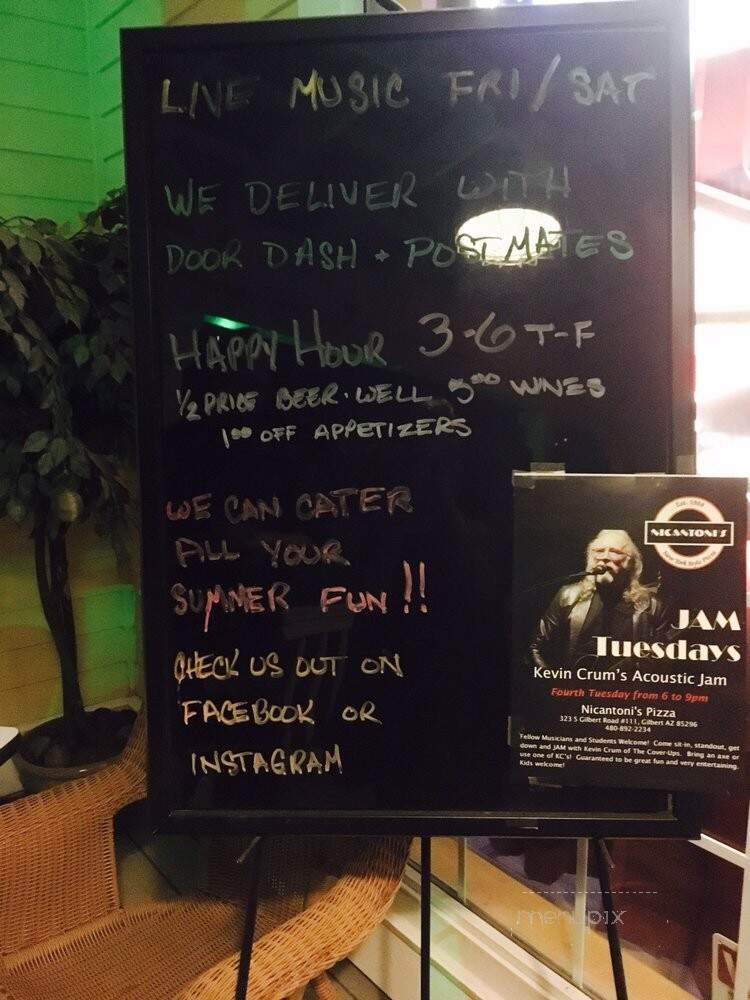 LIVE MUSIC FRI/SAT
WE DELIVER WITH
DOOR DASH + POSTMATES
HAPPY HOUR 3-6 T-F
1/2 PRICE BEER · WELL 5⁰⁰ WINES
1⁰⁰ OFF APPETIZERS
WE CAN CATER
ALL YOUR
SUMMER FUN!!
CHECK US OUT ON
FACEBOOK OR
INSTAGRAM
NICANTONI'S
New York Style Pizza
JAM
Tuesdays
Kevin Crum's Acoustic Jam
Fourth Tuesday from 6 to 9pm
Nicantoni's Pizza
323 S Gilbert Road #111, Gilbert AZ 85296
480-892-2234
Fellow Musicians and Students Welcome! Come sit-in, standout, get
down and JAM with Kevin Crum of The Cover-Ups. Bring an axe or
use one of KC's! Guaranteed to be great fun and very entertaining.
Kids welcome!
menupix